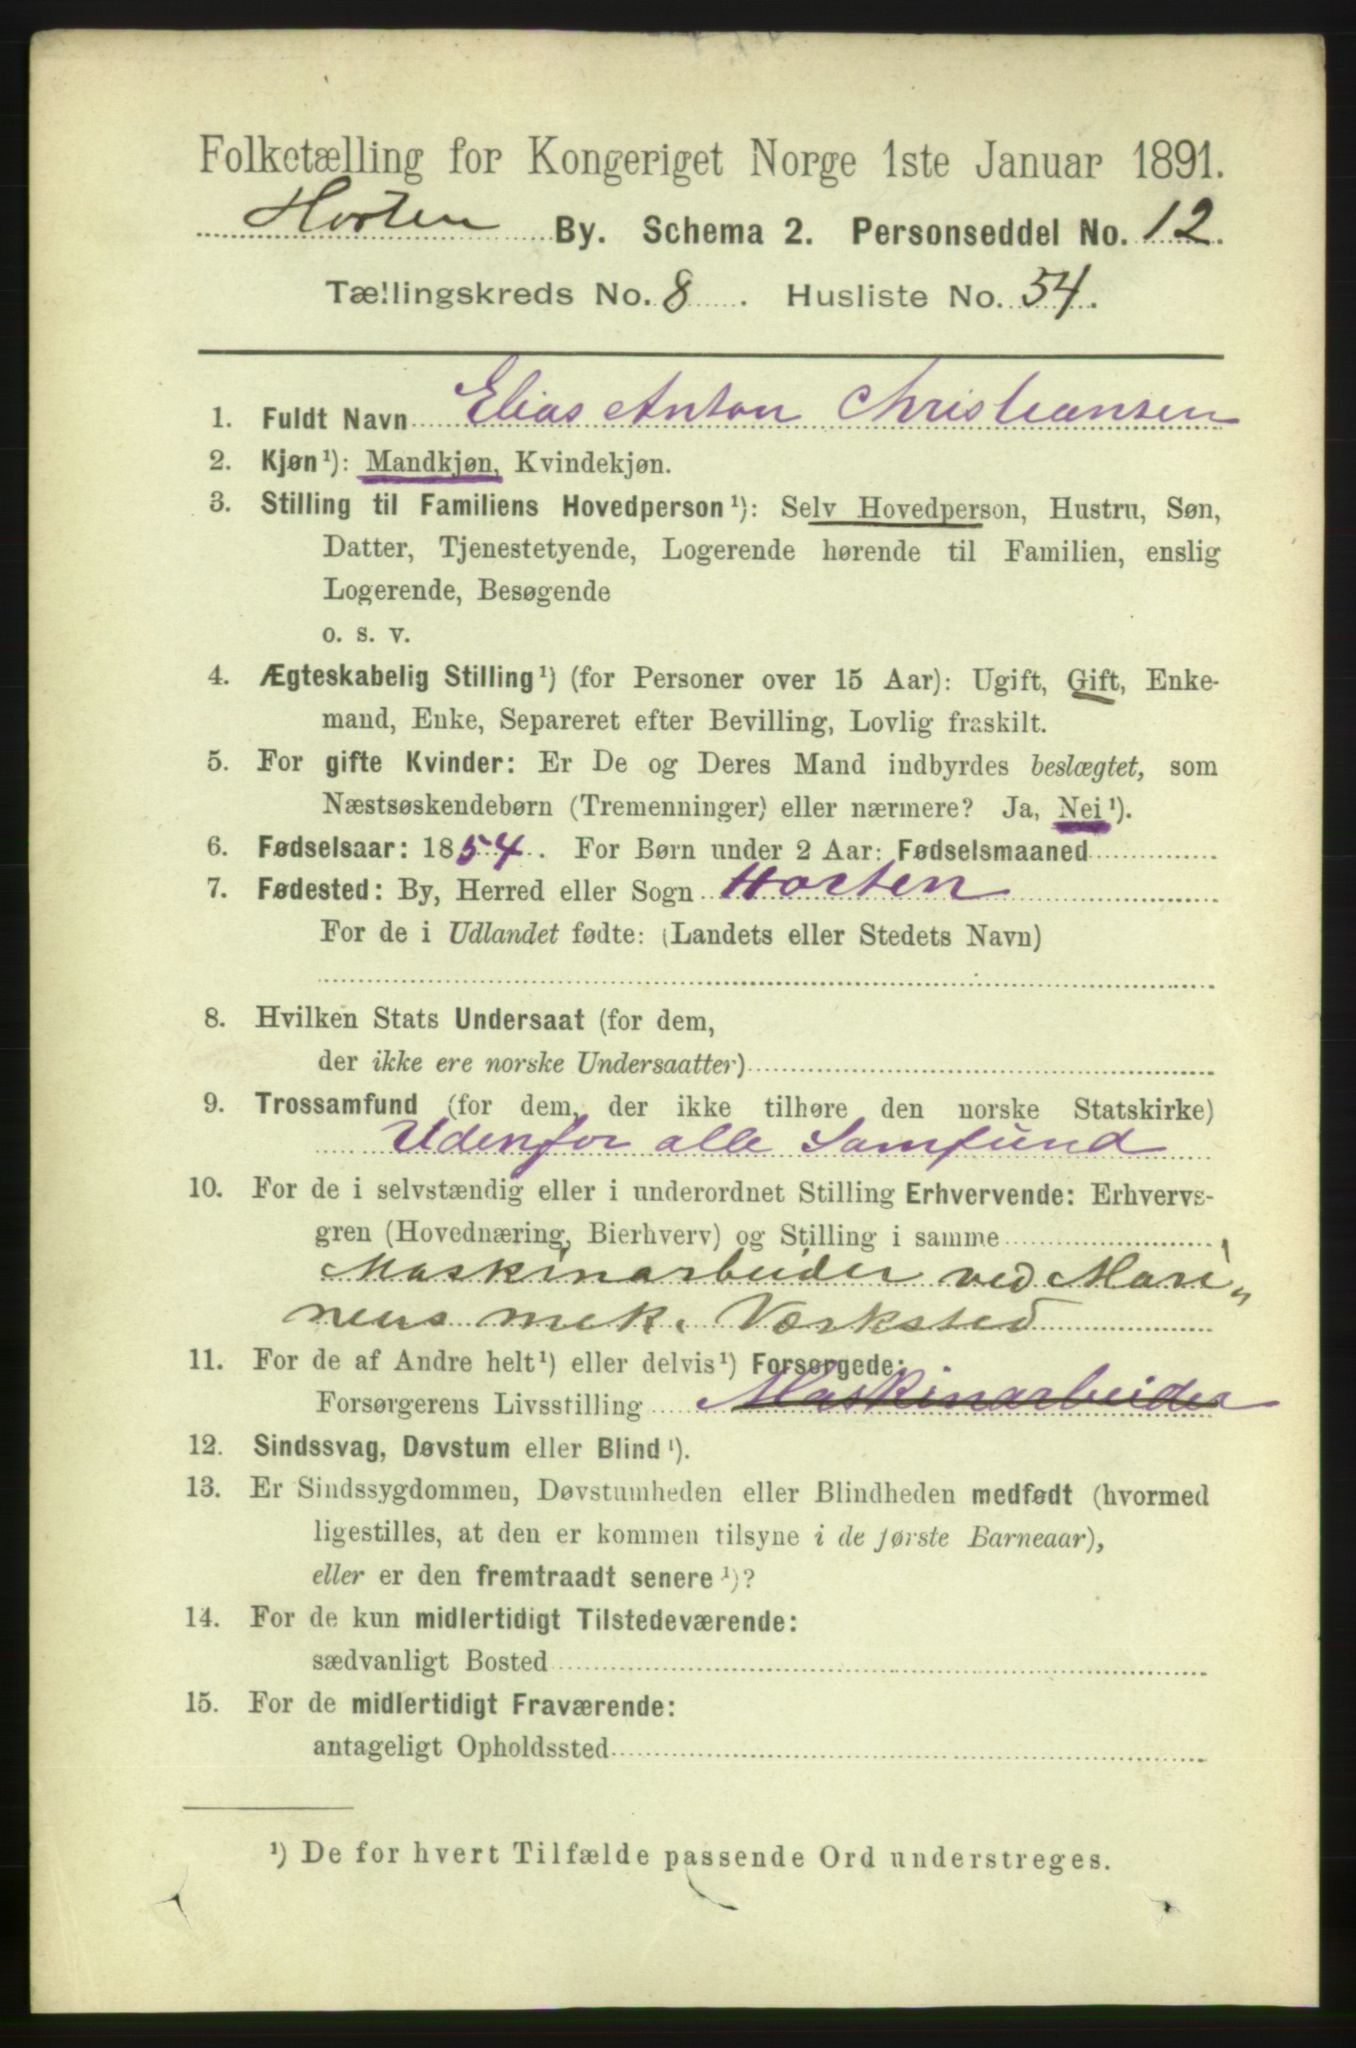 Folketælling for Kongeriget Norge 1ste Januar 1891.
Horten By. Schema 2. Personseddel No. 12.
Tællingskreds No. 8. Husliste No. 54.
1. Fuldt Navn Elias Anton Christiansen
2. Kjøn¹): Mandkjøn, Kvindekjøn.
3. Stilling til Familiens Hovedperson¹): Selv Hovedperson, Hustru, Søn,
Datter, Tjenestetyende, Logerende hørende til Familien, enslig
Logerende, Besøgende
o. s. v.
4. Ægteskabelig Stilling¹) (for Personer over 15 Aar): Ugift, Gift, Enke-
mand, Enke, Separeret efter Bevilling, Lovlig fraskilt.
5. For gifte Kvinder: Er De og Deres Mand indbyrdes beslægtet, som
Næstsøskendebørn (Tremenninger) eller nærmere? Ja, Nei¹).
6. Fødselsaar: 1854. For Børn under 2 Aar: Fødselsmaaned
7. Fødested: By, Herred eller Sogn Horten
For de i Udlandet fødte: (Landets eller Stedets Navn)
8. Hvilken Stats Undersaat (for dem,
der ikke ere norske Undersaatter)
9. Trossamfund (for dem, der ikke tilhøre den norske Statskirke)
Udenfor alle Samfund
10. For de i selvstændig eller i underordnet Stilling Erhvervende: Erhvervs-
gren (Hovednæring, Bierhverv) og Stilling i samme
Maskinarbeider ved Mari-
nens mek. Værksted
11. For de af Andre helt¹) eller delvis¹) Forsørgede:
Forsørgerens Livsstilling Maskinarbeider
12. Sindssvag, Døvstum eller Blind¹).
13. Er Sindssygdommen, Døvstumheden eller Blindheden medfødt (hvormed
ligestilles, at den er kommen tilsyne i de første Barneaar),
eller er den fremtraadt senere¹)?
14. For de kun midlertidigt Tilstedeværende:
sædvanligt Bosted
15. For de midlertidigt Fraværende:
antageligt Opholdssted
¹) De for hvert Tilfælde passende Ord understreges.